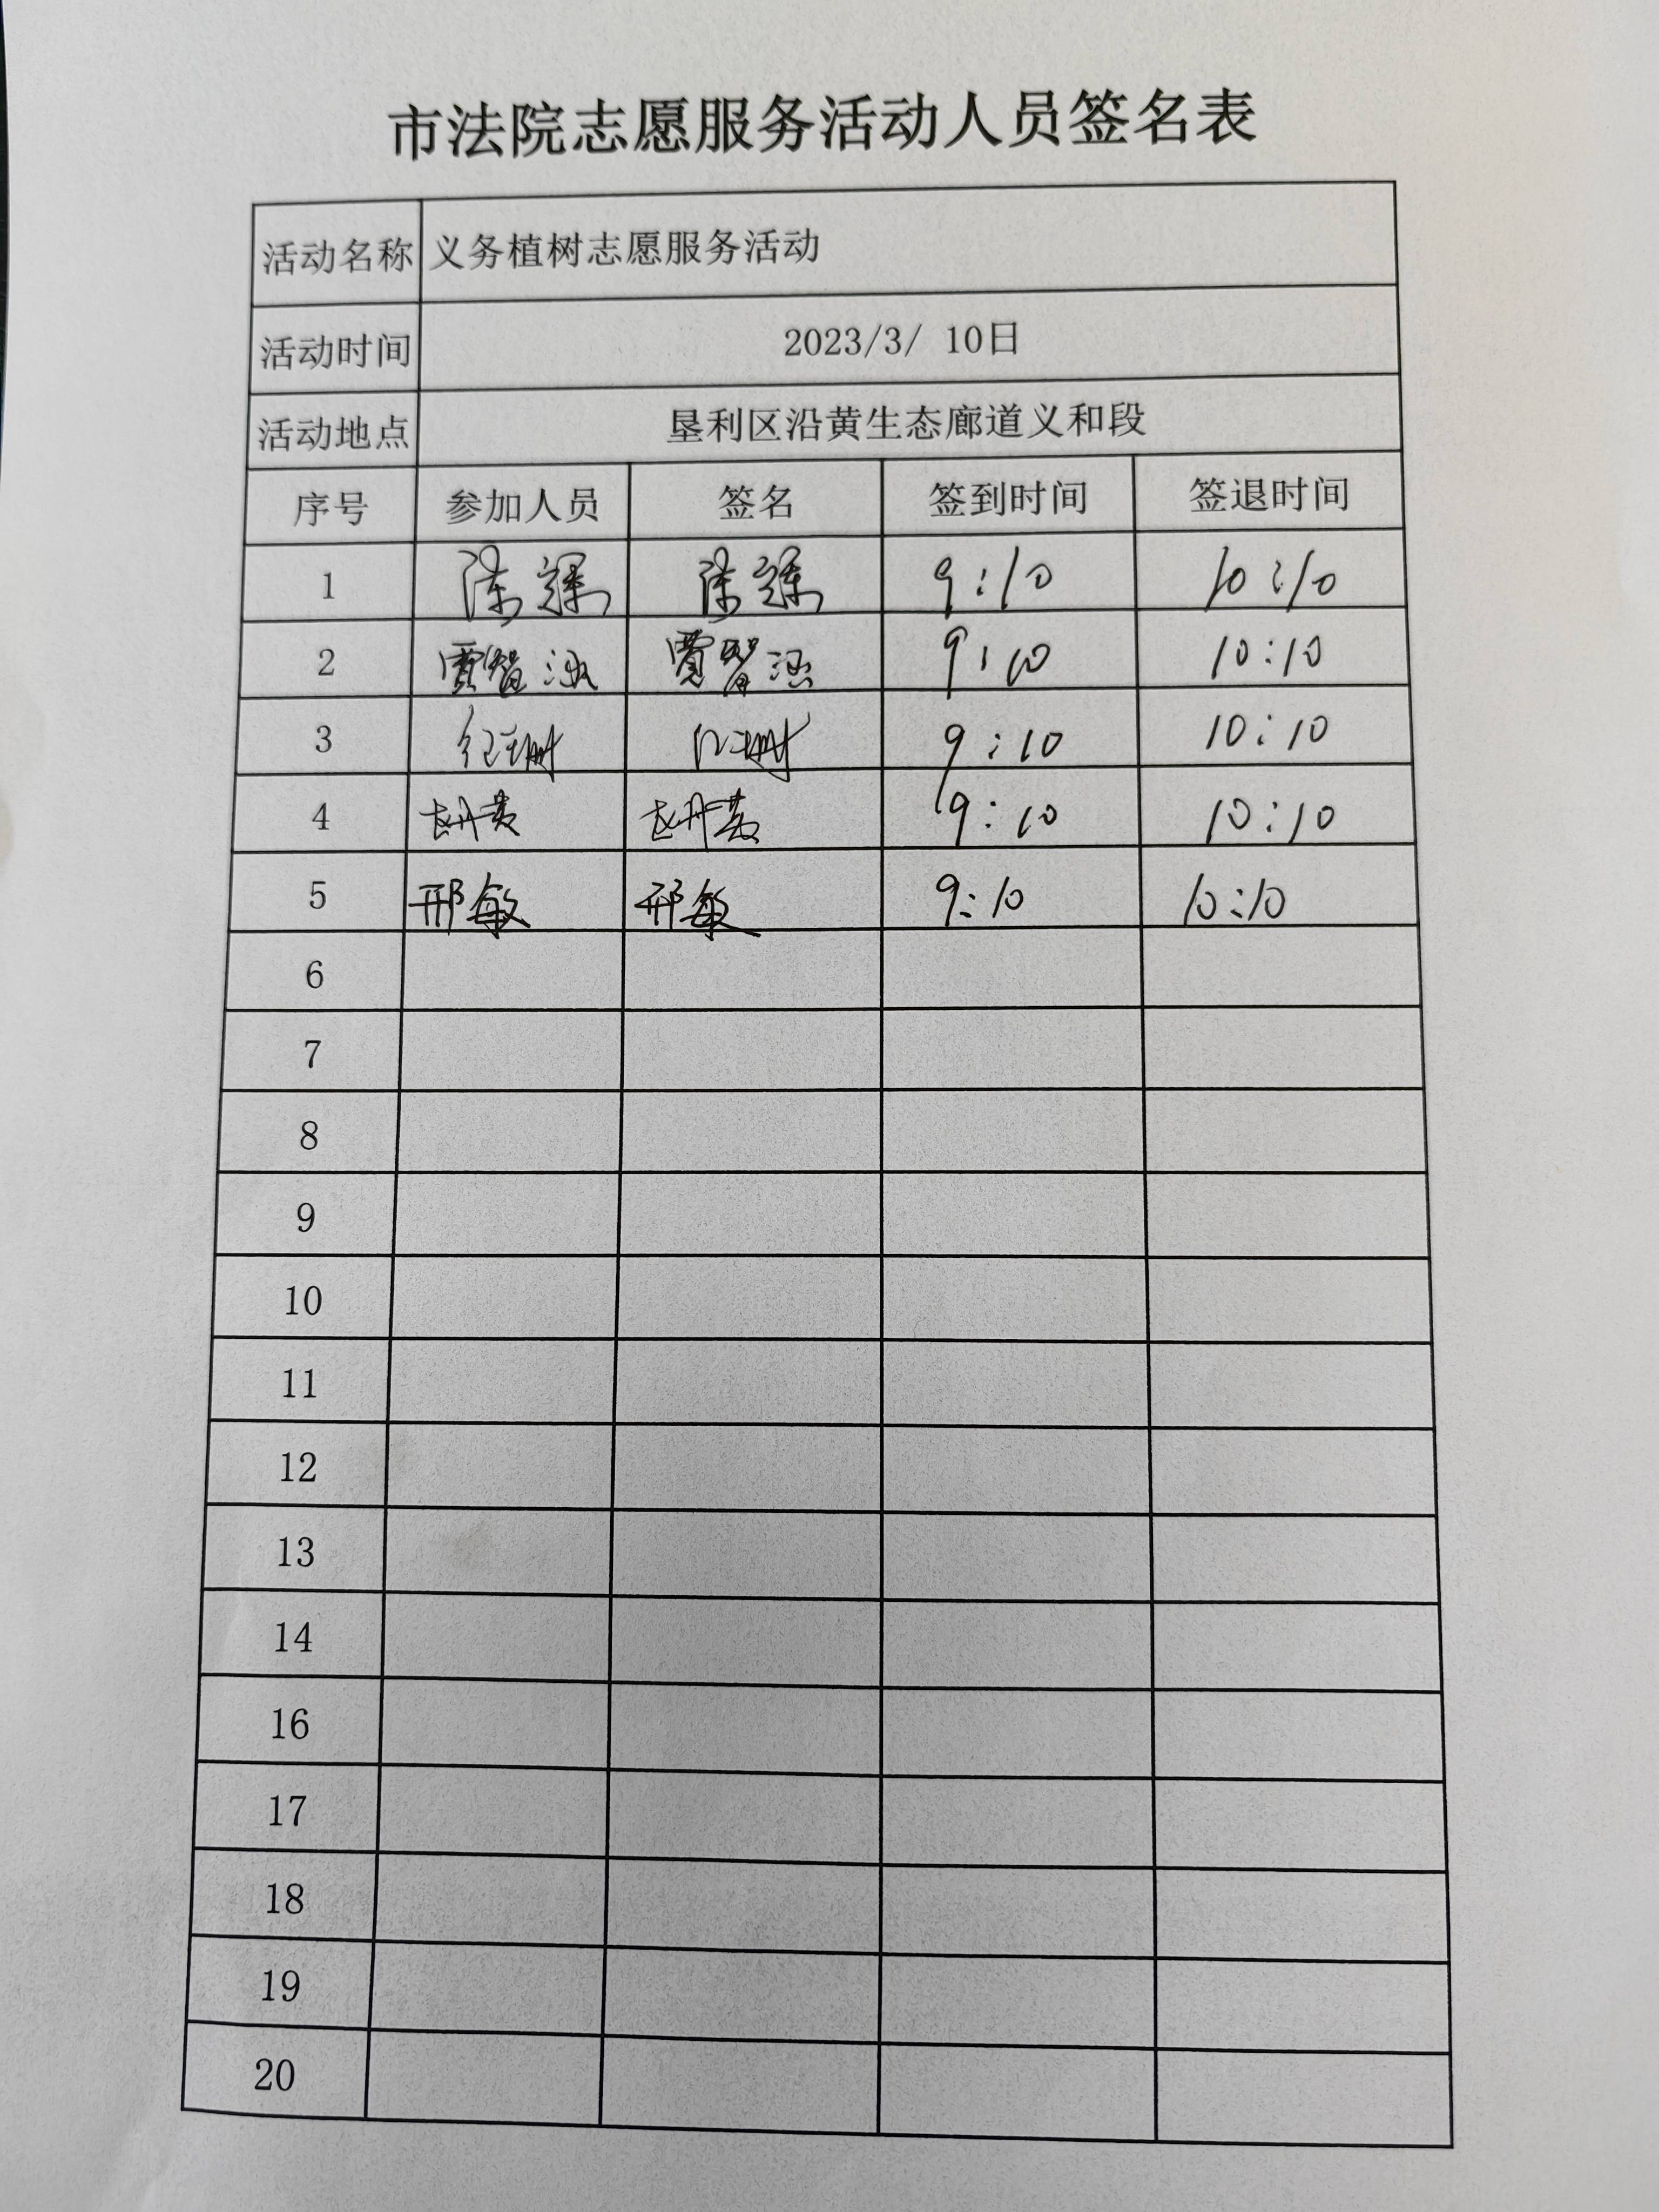 市法院志愿服务活动人员签名表
活动名称 义务植树志愿服务活动
活动时间 2023/3/ 10日
活动地点 垦利区沿黄生态廊道义和段
序号 参加人员 签名 签到时间 签退时间
1 陈 陈 9:10 10:10
2 贾智涵 贾智涵 9:10 10:10
3 9:10 10:10
4 9:10 10:10
5 邢敏 邢敏 9:10 10:10
6
7
8
9
10
11
12
13
14
16
17
18
19
20